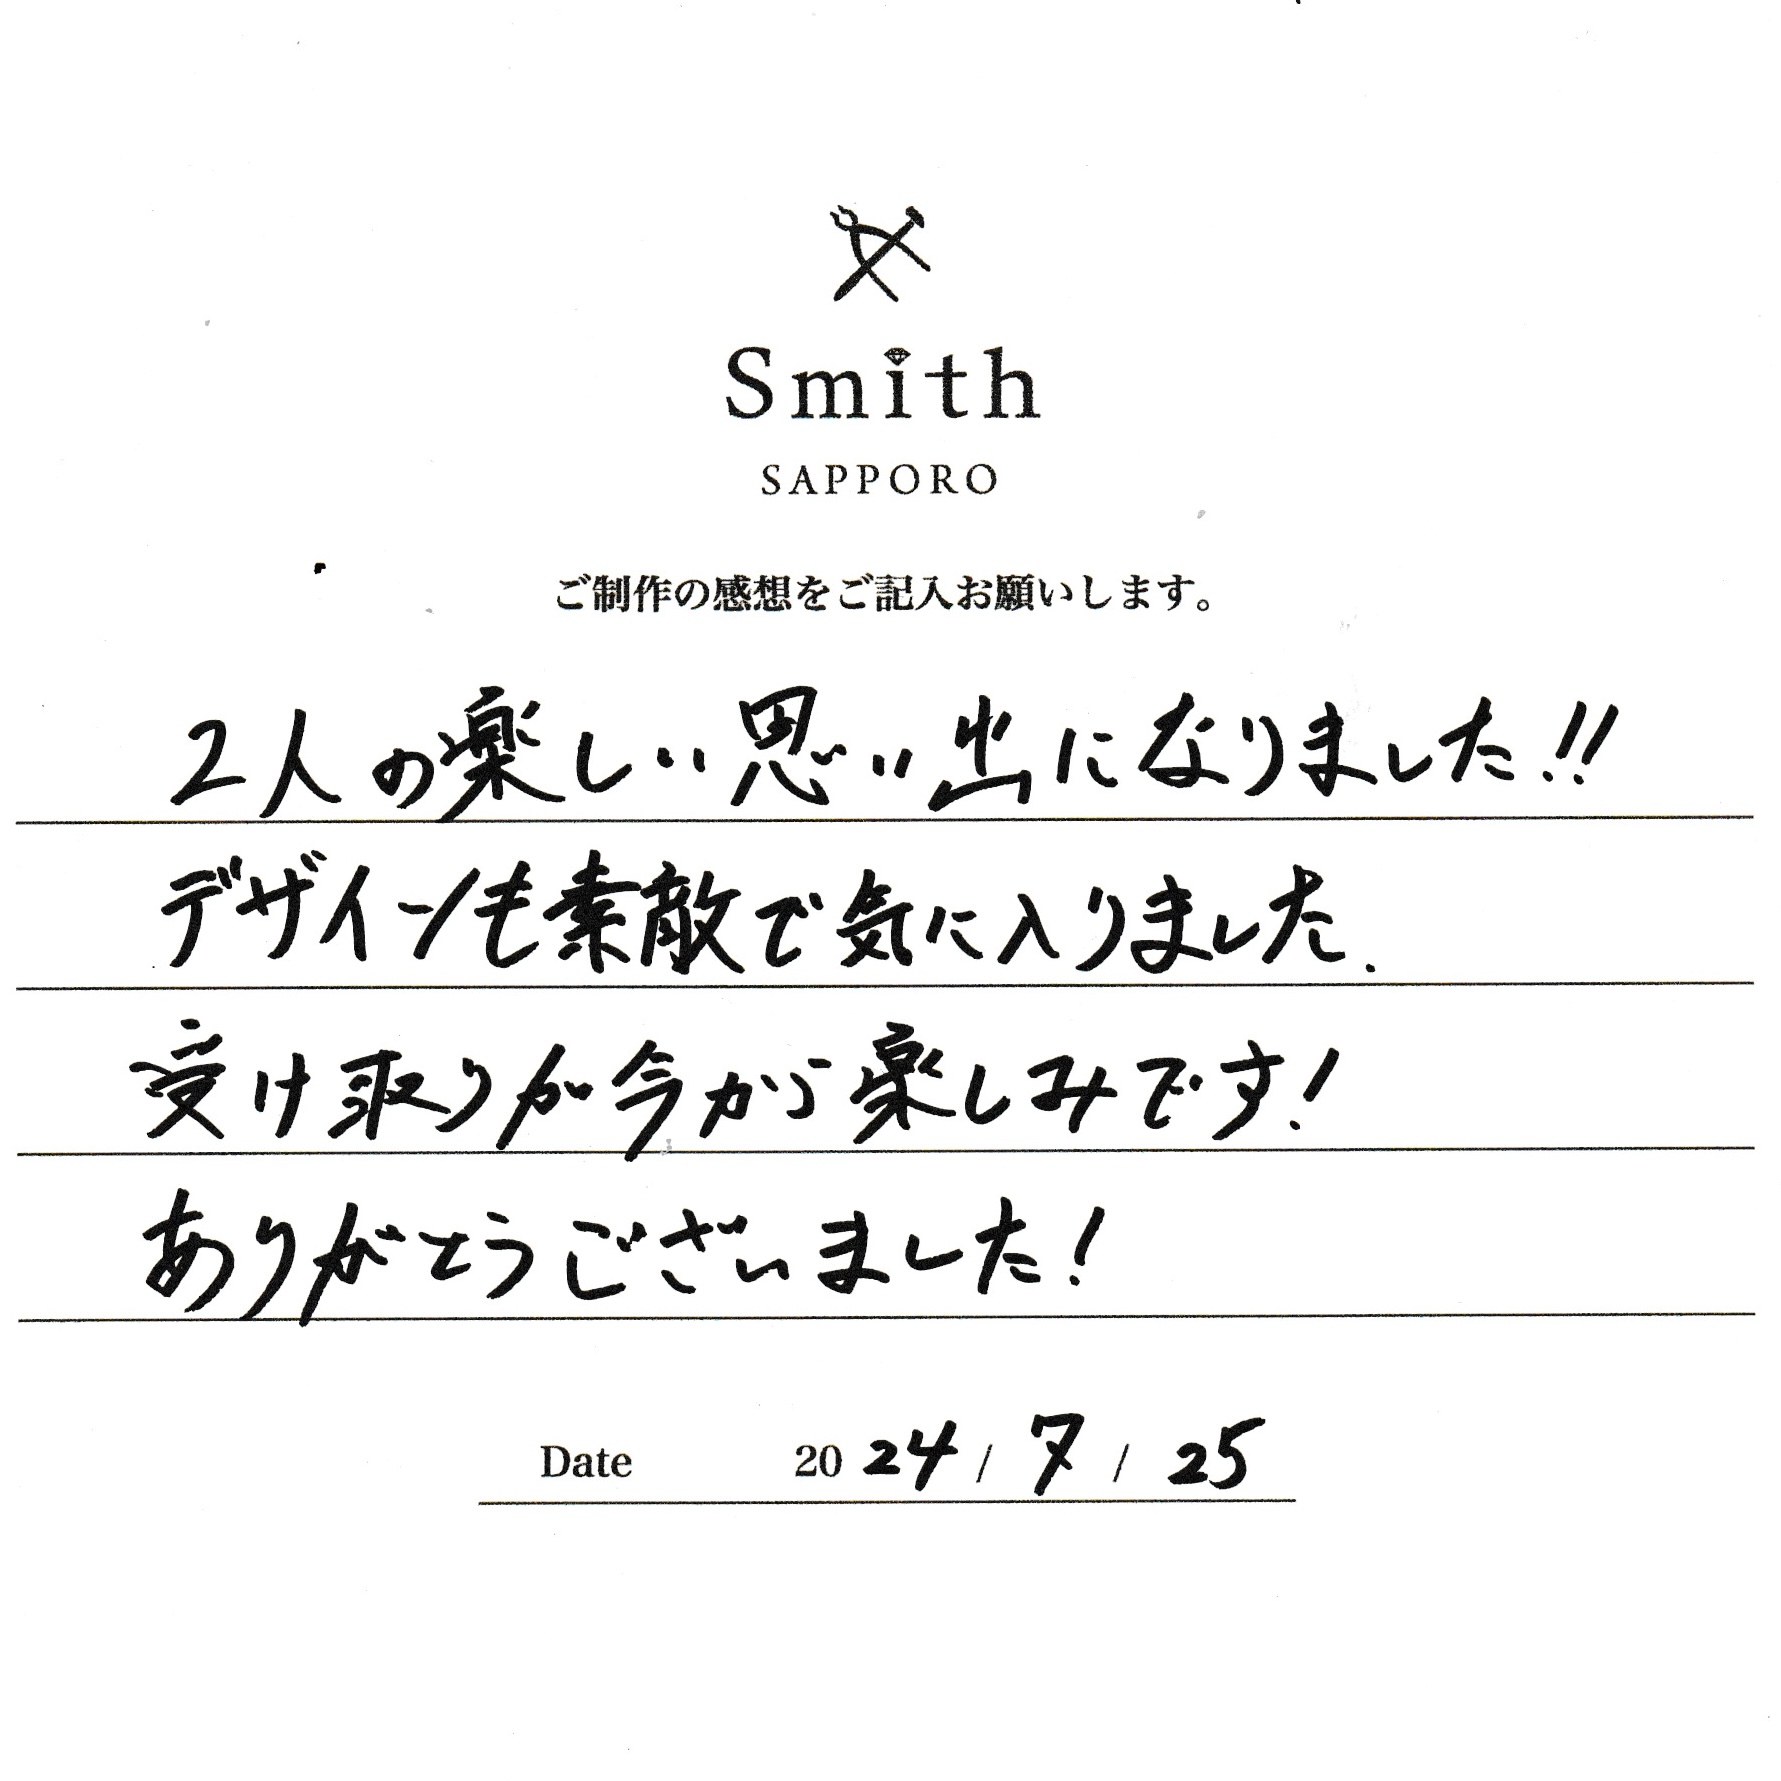 Smith
SAPPORO
ご制作の感想をご記入お願いします。
2人の楽しい思い出になりました!!
デザインも素敵で気に入りました.
受け取りが今から楽しみです!
ありがとうございました!
Date 2024/7/25